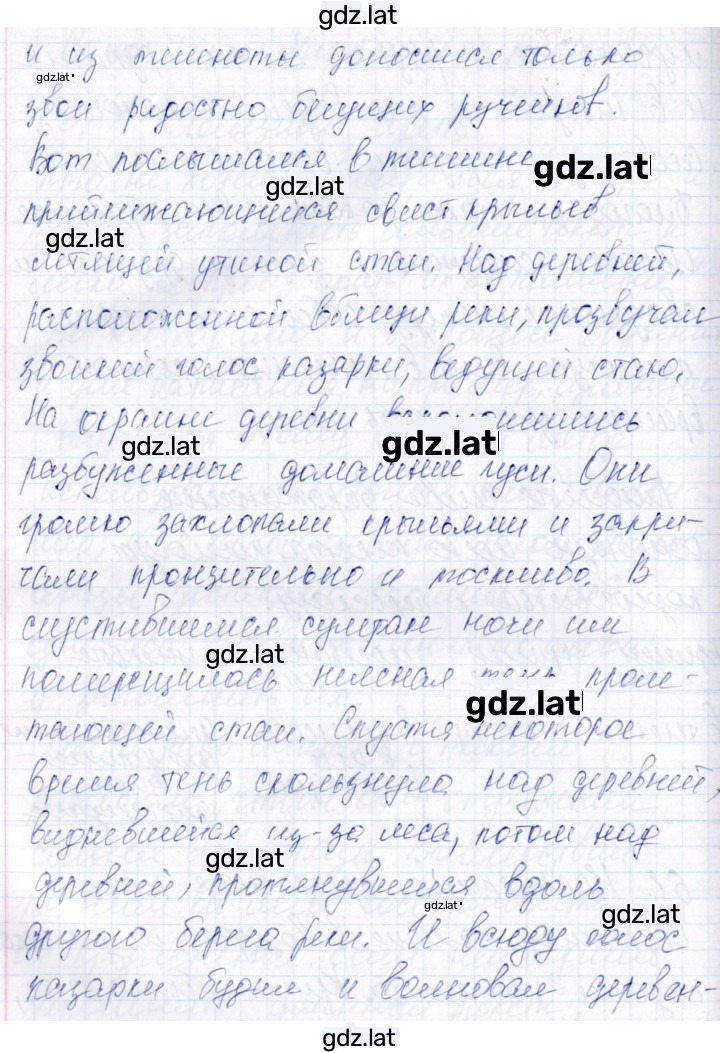 gdz.lat
и из темноты доносился только
gdz.lat
звон радостно бегущих ручейков.
Вот послышался в тишине
gdz.lat
gdz.lat
приближающийся свист крыльев
gdz.lat
летящей утиной стаи. Над деревней,
расположенной вблизи реки, прозвучал
звонкий голос казарки, ведущей стаю.
На окраине деревни
gdz.lat
gdz.lat
разбуженные домашние гуси. Они
громко захлопали крыльями и закри-
чали пронзительно и тоскливо. В
спустившемся сумраке ночи им
gdz.lat
померещилась неясная тень проле-
gdz.lat
тающей стаи. Спустя некоторое
время тень скользнула над деревней,
видневшейся из-за леса, потом над
gdz.lat
деревней, протянувшейся вдоль
gdz.lat
gdz.lat
другого берега реки. И всюду голос
казарки будил и волновал деревен-
gdz.lat